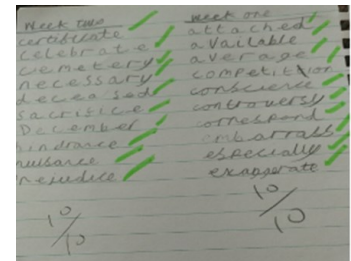 Week two
certificate
celebrate
cemetery
necessary
deceased
sacrifice
December
hindrance
nuisance
prejudice
10/10
week one
attached
available
average
competition
conscience
controversy
correspond
embarrass
especially
exaggerate
10/10